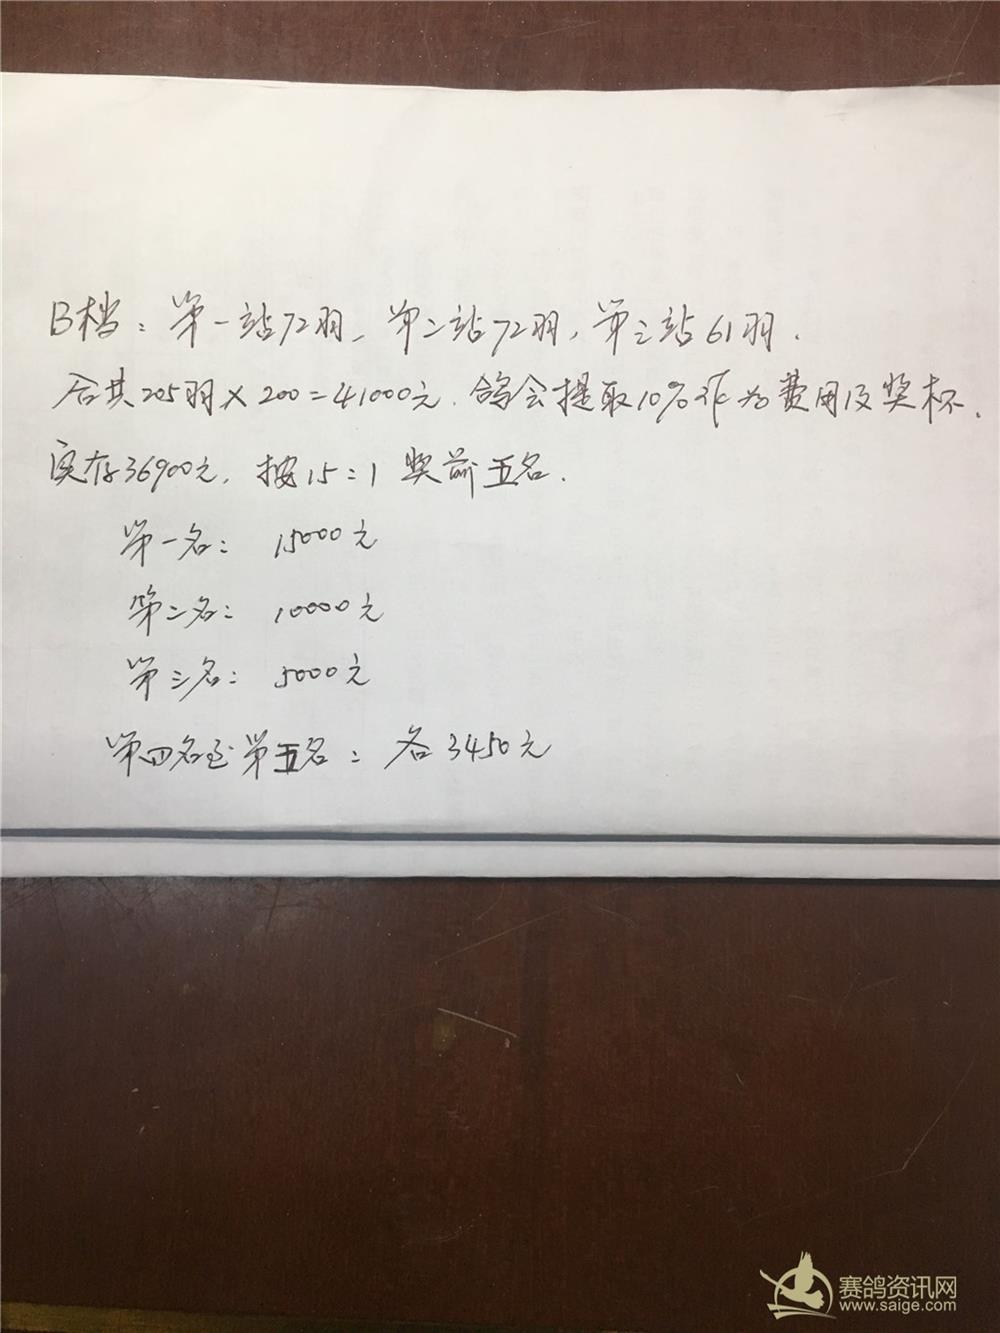 B档：第一站72羽、第二站72羽，第三站61羽.
合共205羽×200=41000元.鸽会提取10%作为费用及奖杯.
实存36900元，按15:1奖前五名.
第一名：15000元
第二名：10000元
第三名：5000元
第四名至第五名：各3450元
赛鸽资讯网
www.saige.com